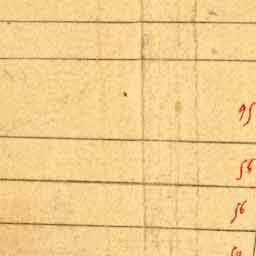 95
56
56